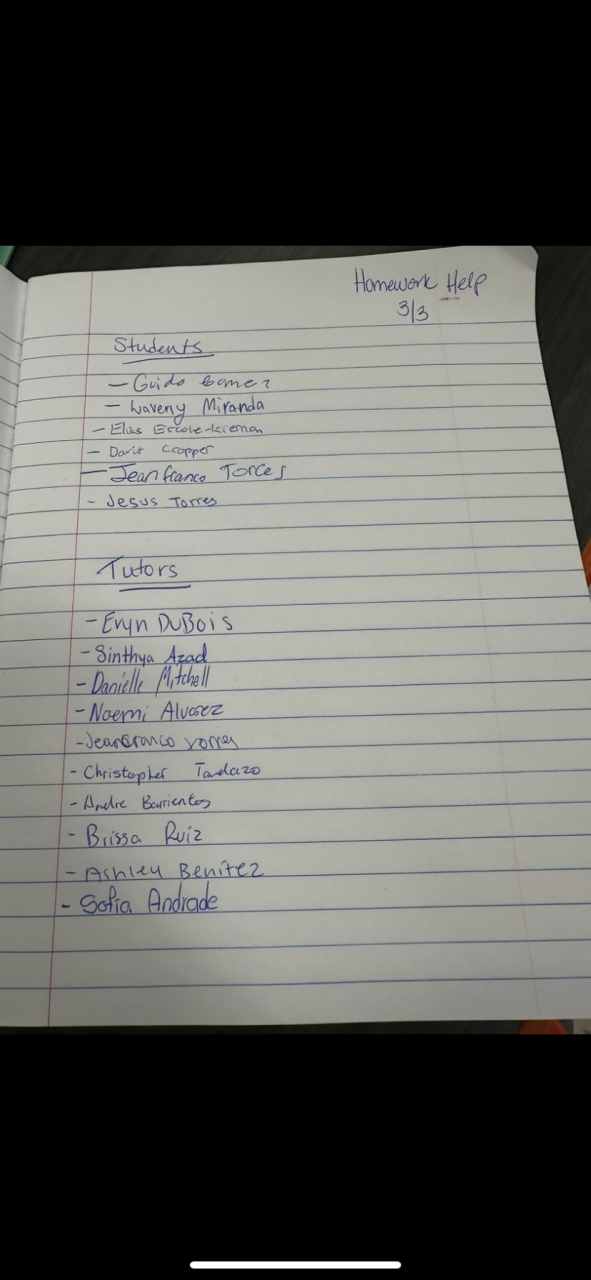 Homework Help
3/3
Students
- Guido Gomez
- Laveny Miranda
- Elias Ercole-Kiernan
- Davit Cropper
- Jeanfranco Torres
- Jesus Torres
Tutors
- Eryn DuBois
- Sinthya Azad
- Danielle Mitchell
- Noemi Alvarez
- Jeanfranco Torres
- Christopher Tandazo
- Andre Barrientos
- Brissa Ruiz
- Ashley Benitez
- Sofia Andrade